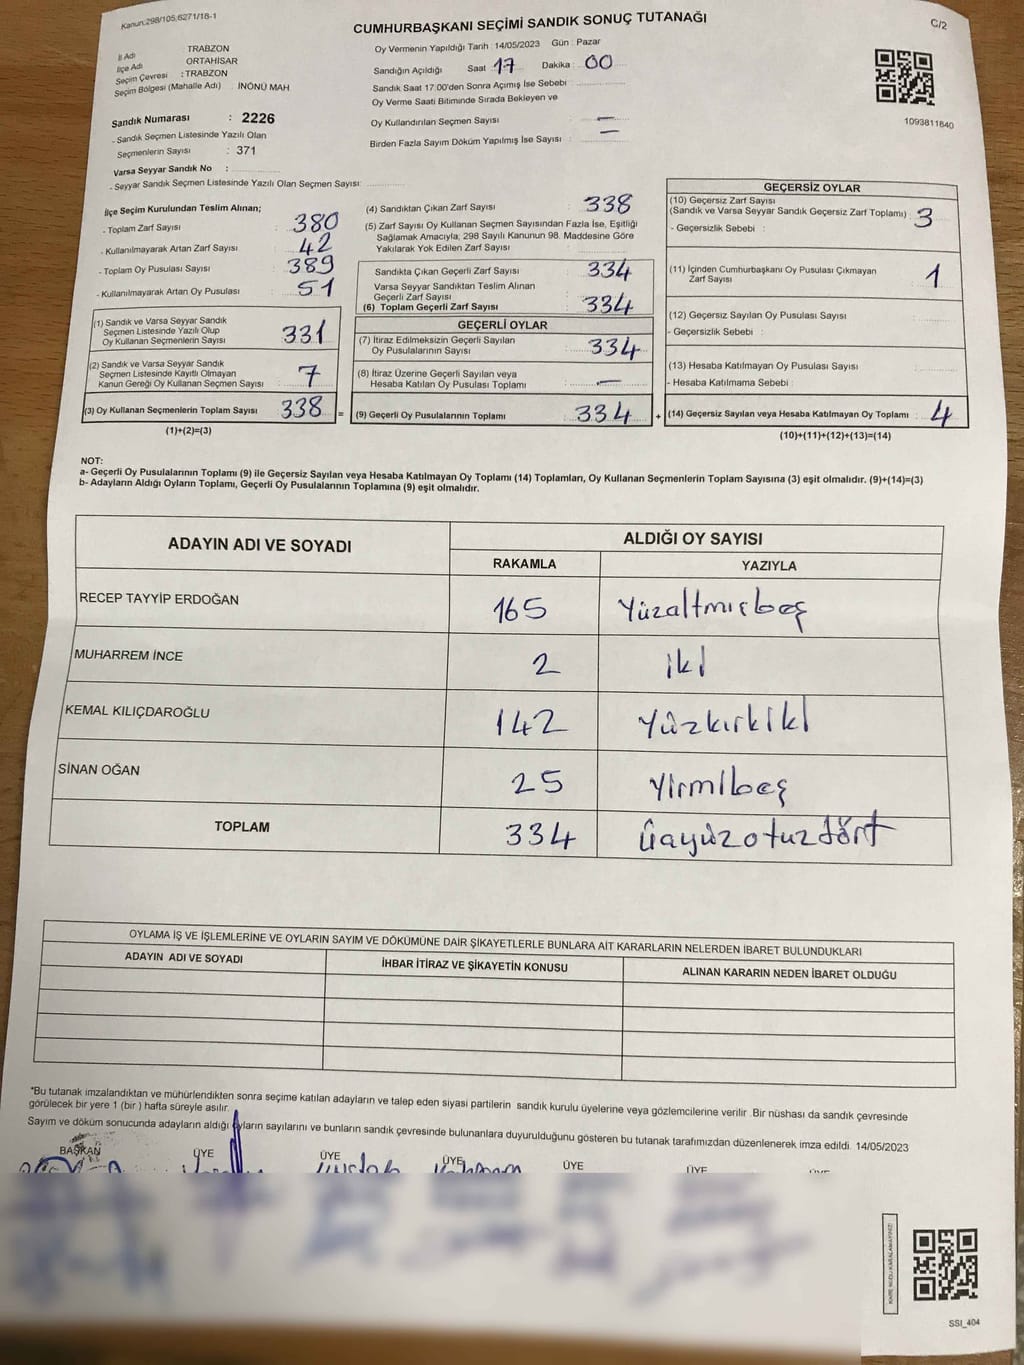 Kanun.298/105,6271/18-1
CUMHURBAŞKANI SEÇİMİ SANDIK SONUÇ TUTANAĞI
C/2
İl Adı TRABZON
İlçe Adı ORTAHİSAR
Seçim Çevresi : TRABZON
Seçim Bölgesi (Mahalle Adı) . İNÖNÜ MAH
Oy Vermenin Yapıldığı Tarih : 14/05/2023 Gün : Pazar
Sandığın Açıldığı Saat 17 Dakika : 00
Sandık Saat 17.00'den Sonra Açımış İse Sebebi :
Oy Verme Saati Bitiminde Sırada Bekleyen ve
Oy Kullandırılan Seçmen Sayısı : —
Birden Fazla Sayım Döküm Yapılmış İse Sayısı : —
1093811640
Sandık Numarası : 2226
- Sandık Seçmen Listesinde Yazılı Olan
Seçmenlerin Sayısı : 371
Varsa Seyyar Sandık No :
- Seyyar Sandık Seçmen Listesinde Yazılı Olan Seçmen Sayısı:
İlçe Seçim Kurulundan Teslim Alınan;
- Toplam Zarf Sayısı : 380
- Kullanılmayarak Artan Zarf Sayısı : 42
- Toplam Oy Pusulası Sayısı : 389
- Kullanılmayarak Artan Oy Pusulası : 51
(1) Sandık ve Varsa Seyyar Sandık
Seçmen Listesinde Yazılı Olup
Oy Kullanan Seçmenlerin Sayısı : 331
(2) Sandık ve Varsa Seyyar Sandık
Seçmen Listesinde Kayıtlı Olmayan
Kanun Gereği Oy Kullanan Seçmen Sayısı : 7
(3) Oy Kullanan Seçmenlerin Toplam Sayısı : 338
(1)+(2)=(3)
(4) Sandıktan Çıkan Zarf Sayısı : 338
(5) Zarf Sayısı Oy Kullanan Seçmen Sayısından Fazla İse, Eşitliği
Sağlamak Amacıyla; 298 Sayılı Kanunun 98. Maddesine Göre
Yakılarak Yok Edilen Zarf Sayısı :
Sandıkta Çıkan Geçerli Zarf Sayısı : 334
Varsa Seyyar Sandıktan Teslim Alınan
Geçerli Zarf Sayısı
(6) Toplam Geçerli Zarf Sayısı : 334
GEÇERLİ OYLAR
(7) İtiraz Edilmeksizin Geçerli Sayılan
Oy Pusulalarının Sayısı : 334
(8) İtiraz Üzerine Geçerli Sayılan veya
Hesaba Katılan Oy Pusulası Toplamı : —
= (9) Geçerli Oy Pusulalarının Toplamı : 334
GEÇERSİZ OYLAR
(10) Geçersiz Zarf Sayısı
(Sandık ve Varsa Seyyar Sandık Geçersiz Zarf Toplamı) : 3
- Geçersizlik Sebebi :
(11) İçinden Cumhurbaşkanı Oy Pusulası Çıkmayan
Zarf Sayısı : 1
(12) Geçersiz Sayılan Oy Pusulası Sayısı :
- Geçersizlik Sebebi :
(13) Hesaba Katılmayan Oy Pusulası Sayısı :
- Hesaba Katılmama Sebebi :
+ (14) Geçersiz Sayılan veya Hesaba Katılmayan Oy Toplamı : 4
(10)+(11)+(12)+(13)=(14)
NOT:
a- Geçerli Oy Pusulalarının Toplamı (9) ile Geçersiz Sayılan veya Hesaba Katılmayan Oy Toplamı (14) Toplamları, Oy Kullanan Seçmenlerin Toplam Sayısına (3) eşit olmalıdır. (9)+(14)=(3)
b- Adayların Aldığı Oyların Toplamı, Geçerli Oy Pusulalarının Toplamına (9) eşit olmalıdır.
ADAYIN ADI VE SOYADI ALDIĞI OY SAYISI
RAKAMLA YAZIYLA
RECEP TAYYİP ERDOĞAN 165 Yüzaltmışbeş
MUHARREM İNCE 2 iki
KEMAL KILIÇDAROĞLU 142 Yüzkırkiki
SİNAN OĞAN 25 Yirmibeş
TOPLAM 334 Üçyüzotuzdört
OYLAMA İŞ VE İŞLEMLERİNE VE OYLARIN SAYIM VE DÖKÜMÜNE DAİR ŞİKAYETLERLE BUNLARA AİT KARARLARIN NELERDEN İBARET BULUNDUKLARI
ADAYIN ADI VE SOYADI İHBAR İTİRAZ VE ŞİKAYETİN KONUSU ALINAN KARARIN NEDEN İBARET OLDUĞU
*Bu tutanak imzalandıktan ve mühürlendikten sonra seçime katılan adayların ve talep eden siyasi partilerin sandık kurulu üyelerine veya gözlemcilerine verilir. Bir nüshası da sandık çevresinde
görülecek bir yere 1 (bir) hafta süreyle asılır.
Sayım ve döküm sonucunda adayların aldığı oyların sayılarını ve bunların sandık çevresinde bulunanlara duyurulduğunu gösteren bu tutanak tarafımızdan düzenlenerek imza edildi. 14/05/2023
BAŞKAN ÜYE ÜYE ÜYE ÜYE ÜYE
KARE KODU KARALAMAYINIZ!
SSI_404